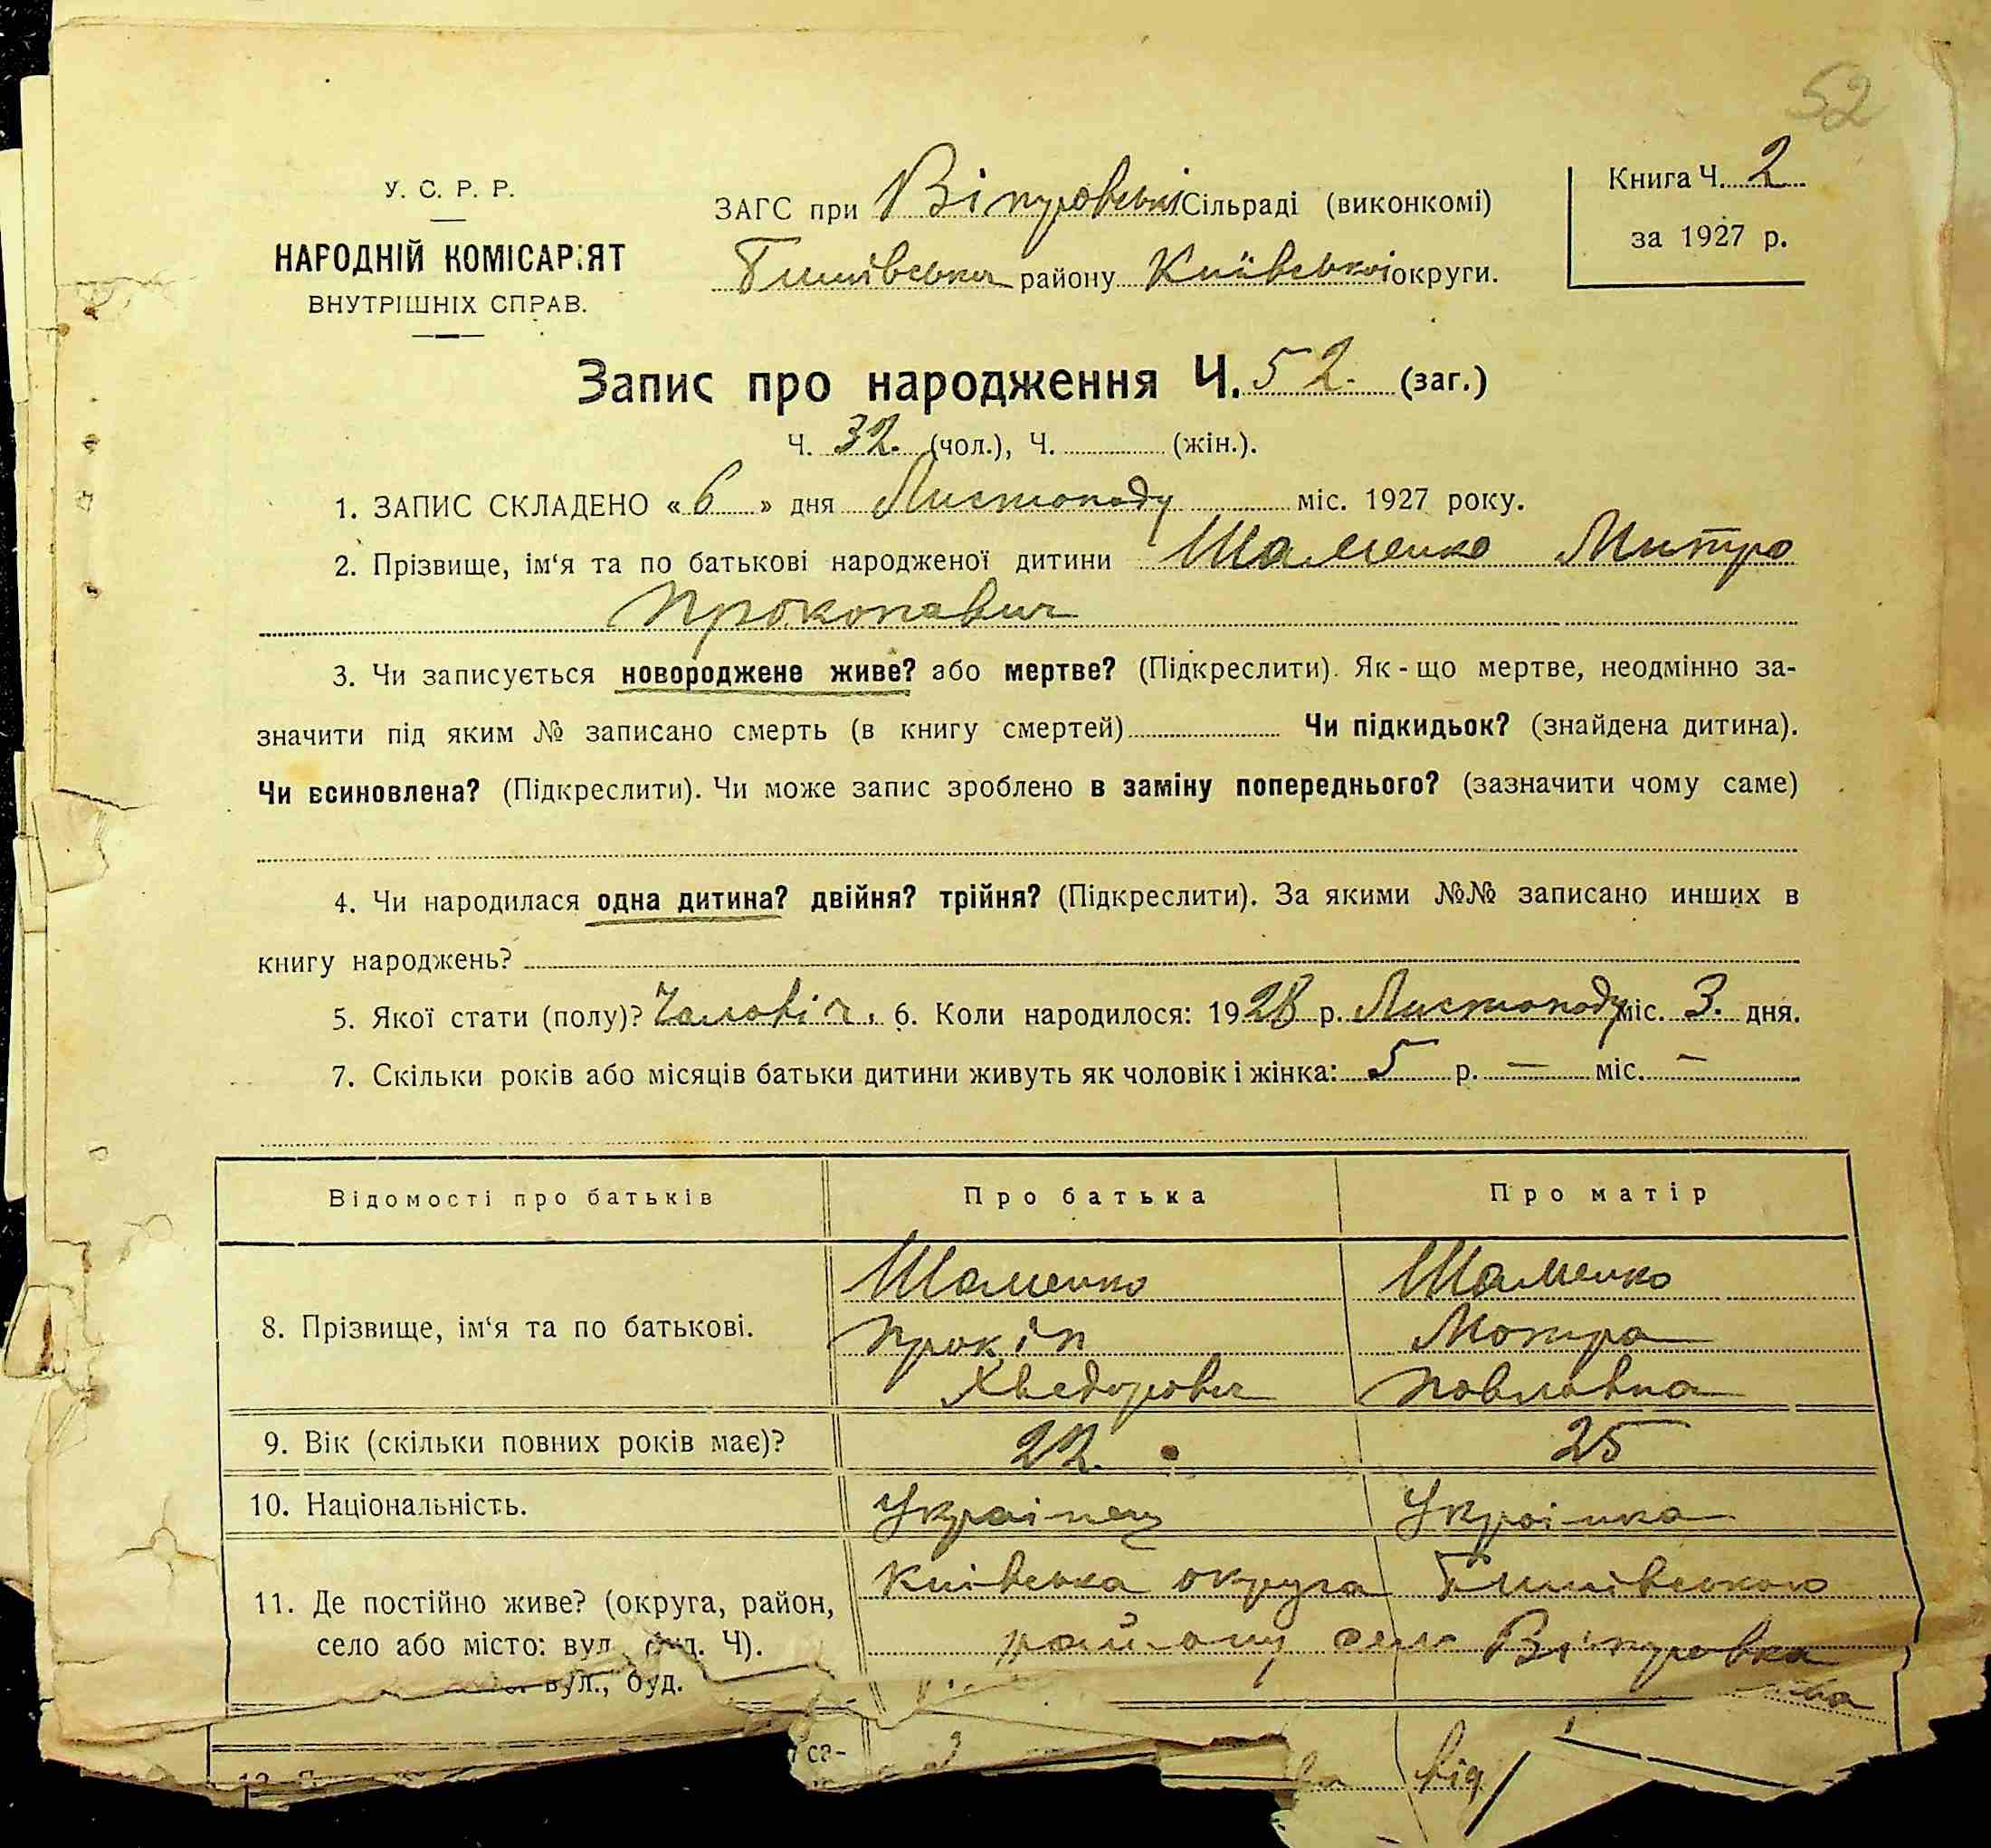 52
У. С. Р. Р.
НАРОДНІЙ КОМІСАРІЯТ
ВНУТРІШНІХ СПРАВ.
ЗАГС при Віпуровській Сільраді (виконкомі)
району Київської округи.
Книга Ч. 2
за 1927 р.
Запис про народження Ч. 52. (заг.)
Ч. 32. (чол.), Ч. (жін.).
1. ЗАПИС СКЛАДЕНО « 6 » дня Листопаду міс. 1927 року.
2. Прізвище, ім‘я та по батькові народженої дитини Шаменко Митро
Прокопавич
3. Чи записується новороджене живе? або мертве? (Підкреслити). Як-що мертве, неодмінно за-
значити під яким № записано смерть (в книгу смертей) Чи підкидьок? (знайдена дитина).
Чи всиновлена? (Підкреслити). Чи може запис зроблено в заміну попереднього? (зазначити чому саме)
4. Чи народилася одна дитина? двійня? трійня? (Підкреслити). За якими №№ записано инших в
книгу народжень?
5. Якої стати (полу)? Чаловіч. 6. Коли народилося: 1928 р. Листопаду міс. 3. дня.
7. Скільки років або місяців батьки дитини живуть як чоловік і жінка: 5 р. — міс. —
Відомості про батьків Про батька Про матір
8. Прізвище, ім‘я та по батькові.
Шаменко Шаменко
Прокіп Мотра
Хведорович Павлавна
9. Вік (скільки повних років має)? 22. 25
10. Національність. Українец Українка
11. Де постійно живе? (округа, район,
село або місто: вул. буд. Ч).
Київська округа
району село Віпуровка
вул., буд.
від